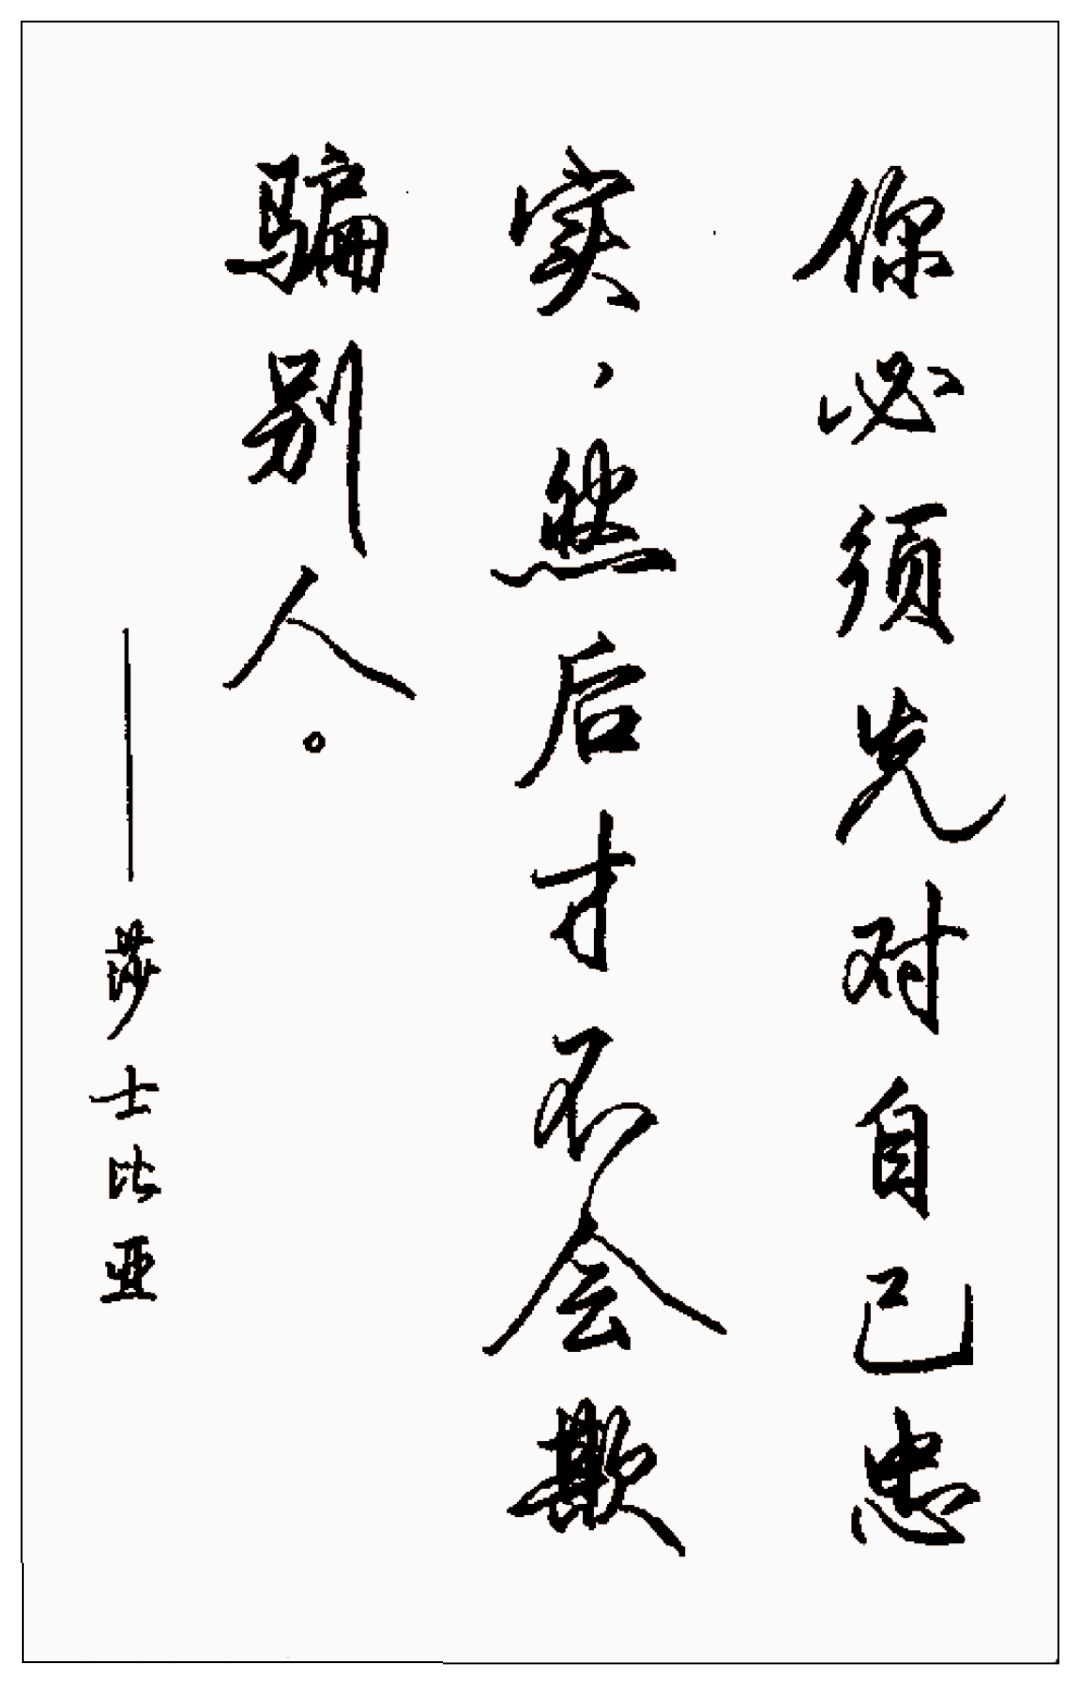 你必须先对自己忠
实，然后才不会欺
骗别人。
——莎士比亚